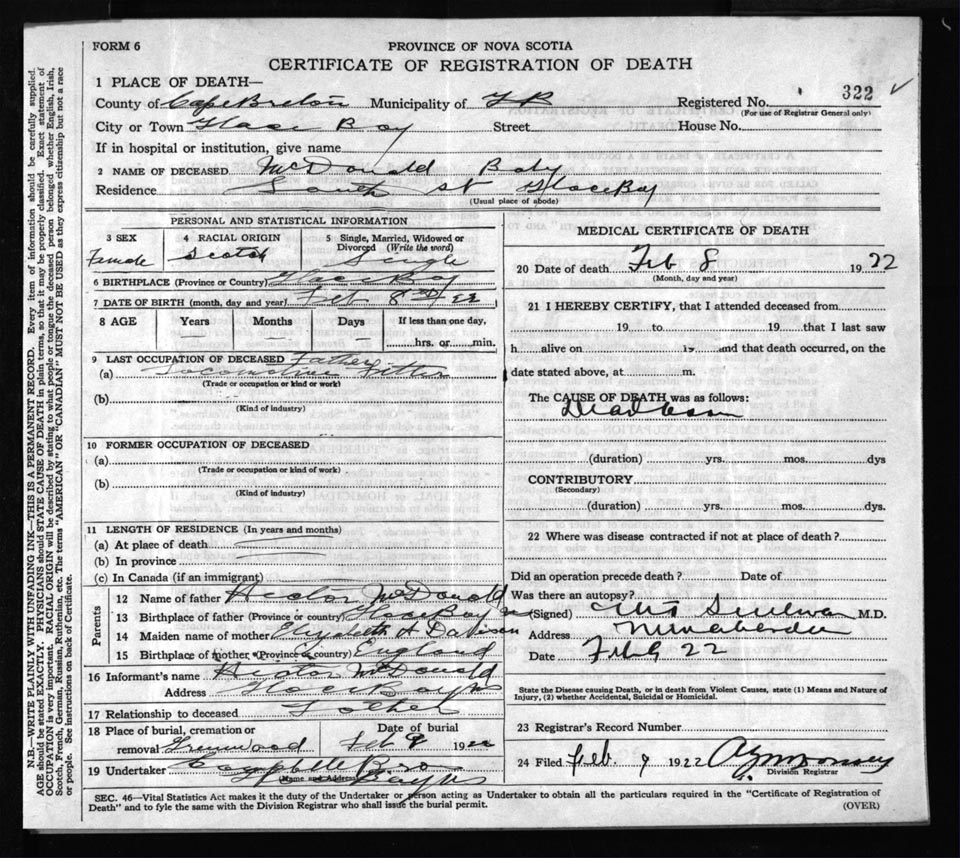 FORM 6
PROVINCE OF NOVA SCOTIA
CERTIFICATE OF REGISTRATION OF DEATH
1 PLACE OF DEATH—
County of Cape Breton Municipality of Registered No. 322
(For use of Registrar General only)
City or Town Glace Bay Street House No.
If in hospital or institution, give name
2 NAME OF DECEASED McDonald Baby
Residence South St Glace Bay
(Usual place of abode)
PERSONAL AND STATISTICAL INFORMATION
3 SEX 4 RACIAL ORIGIN 5 Single, Married, Widowed or Divorced (Write the word)
Female Scotch Single
6 BIRTHPLACE (Province or Country) Glace Bay
7 DATE OF BIRTH (month, day and year) Feb 8 22
8 AGE Years Months Days If less than one day,
hrs. or min.
9 LAST OCCUPATION OF DECEASED Father
(a) Locomotive Fitter
(Trade or occupation or kind or work)
(b)
(Kind of industry)
10 FORMER OCCUPATION OF DECEASED
(a)
(Trade or occupation or kind of work)
(b)
(Kind of industry)
11 LENGTH OF RESIDENCE (In years and months)
(a) At place of death
(b) In province
(c) In Canada (if an immigrant)
Parents
12 Name of father Hector McDonald
13 Birthplace of father (Province or country) Glace Bay
14 Maiden name of mother Elizabeth A Davison
15 Birthplace of mother (Province or country) England
16 Informant's name Hector McDonald
Address Glace Bay NS
17 Relationship to deceased Father
18 Place of burial, cremation or removal Greenwood
Date of burial
Feb 9 1922
19 Undertaker Campbell Bros
(Name and Address)
MEDICAL CERTIFICATE OF DEATH
20 Date of death Feb 8 1922
(Month, day and year)
21 I HEREBY CERTIFY, that I attended deceased from
19 to 19 that I last saw
h alive on 19 and that death occurred, on the
date stated above, at m.
The CAUSE OF DEATH was as follows:
Dead born
(duration) yrs. mos. dys
CONTRIBUTORY
(Secondary)
(duration) yrs. mos. dys
22 Where was disease contracted if not at place of death?
Did an operation precede death? Date of
Was there an autopsy?
(Signed) Sullivan M.D.
Address New Aberdeen
Date Feb 9 22
State the Disease causing Death, or in death from Violent Causes, state (1) Means and Nature of
Injury, (2) whether Accidental, Suicidal or Homicidal.
23 Registrar's Record Number
24 Filed Feb. 9 1922
Division Registrar
SEC. 46—Vital Statistics Act makes it the duty of the Undertaker or person acting as Undertaker to obtain all the particulars required in the "Certificate of Registration of
Death" and to fyle the same with the Division Registrar who shall issue the burial permit.
(OVER)
N.B.—WRITE PLAINLY WITH UNFADING INK—THIS IS A PERMANENT RECORD. Every item of information should be carefully supplied.
AGE should be stated EXACTLY. PHYSICIANS should STATE CAUSE OF DEATH in plain terms, so that it may be properly classified. Exact statement of
OCCUPATION is very important. RACIAL ORIGIN will be described by stating to what people or tongue the deceased person belonged whether English, Irish,
Scotch, French, German, Russian, Ruthenian, etc. The terms "AMERICAN" OR "CANADIAN" MUST NOT BE USED as they express citizenship but not a race
or people. See instructions on back of Certificate.